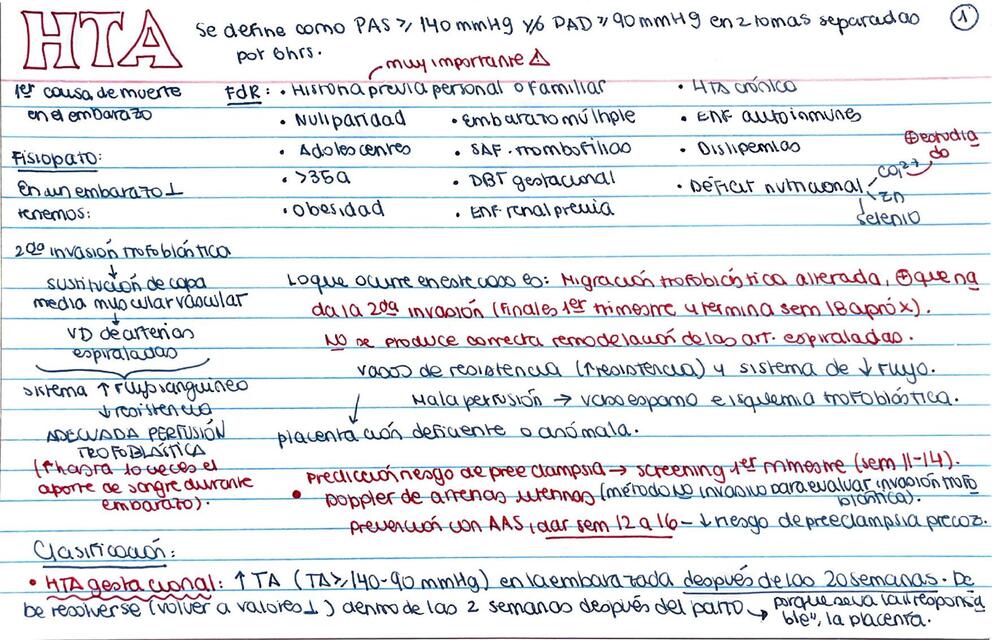 HTA
Se define como PAS ≥ 140 mmHg y/ó PAD ≥ 90 mmHg en 2 tomas separadas
por 6hrs.
1
muy importante ⚠
1er causa de muerte
en el embarazo
FdR: • Historia previa personal o familiar
• HTA crónica
• Nuliparidad
• Embarazo múltiple
• ENF autoinmunes
• Adolescentes
• SAF - trombofilias
• Dislipemias
• >35a
• DBT gestacional
• Déficit nutricional
Ca2+
⊕ estudia
do
Zn
selenio
• Obesidad
• ENF renal previa
Fisiopato:
En un embarazo ⊥
tenemos:
2da invasión trofoblástica
↓
sustitución de capa
media muscular vascular
↓
VD de arterias
espiraladas
sistema ↑ flujo sanguíneo
↓ resistencia
ADECUADA PERFUSIÓN
TROFOBLÁSTICA
(↑ hasta 10 veces el
aporte de sangre durante
embarazo).
Lo que ocurre en este caso es: Migración trofoblástica alterada, ⊕ que na
da la 2da invasión (finales 1er trimestre y termina sem 18 apróx).
No se produce correcta remodelación de las art. espiraladas.
vasos de resistencia (↑resistencia) y sistema de ↓ flujo.
Mala perfusión → vasoespasmo e isquemia trofoblástica.
placentación deficiente o anómala.
Predicción riesgo de preeclampsia → screening 1er trimestre (sem 11-14).
• Doppler de arterias uterinas (método no invasivo para evaluar invasión trofo
blástica).
prevención con AAS, dar sem 12 a 16 - ↓ riesgo de preeclampsia precoz.
Clasificación:
• HTA gestacional: ↑ TA (TA ≥ 140-90 mmHg) en la embarazada después de las 20 semanas. De
be resolverse (volver a valores ⊥) dentro de las 2 semanas después del parto → porque se va la "responsa
ble", la placenta.